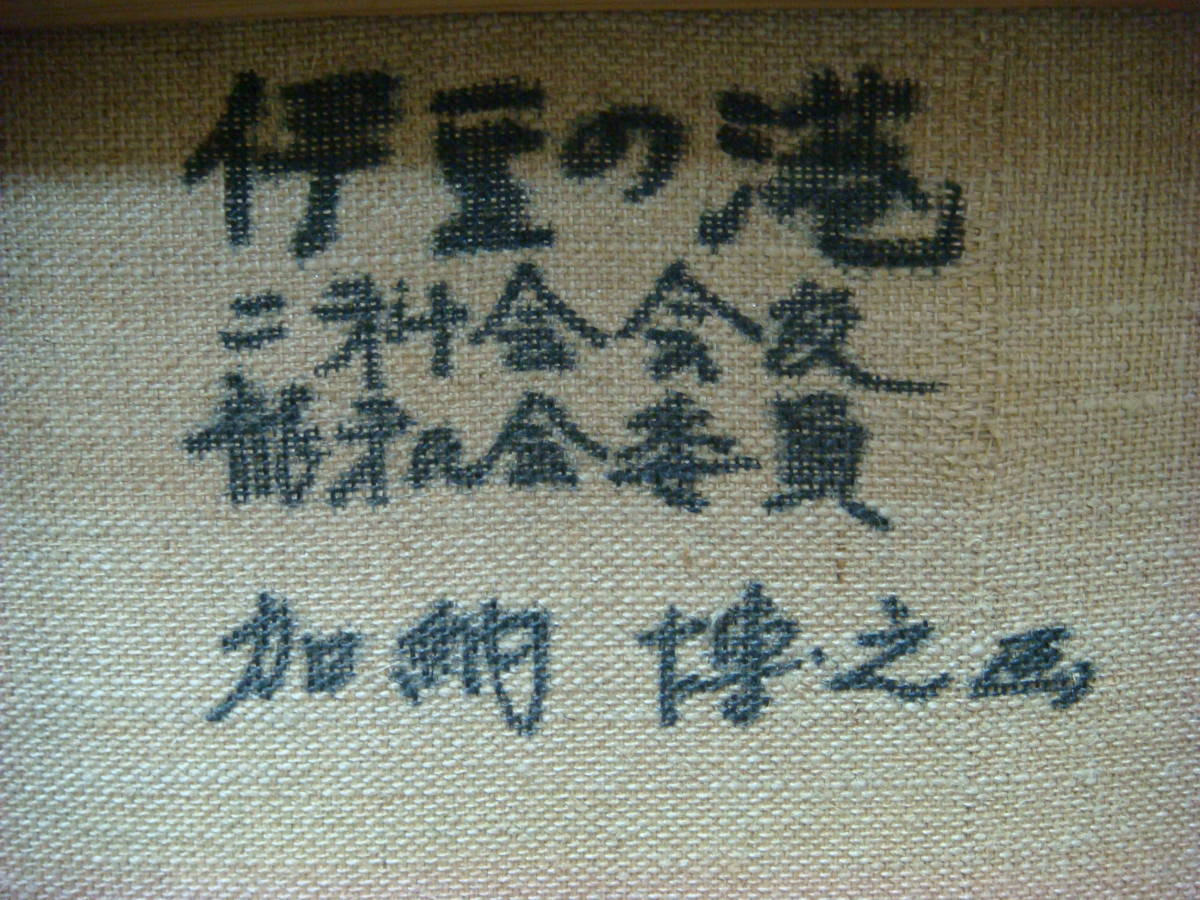 伊豆の港
二科会会友
龍和会委員
加納 博之